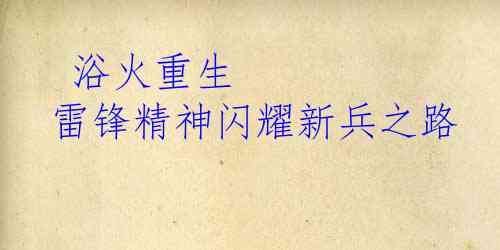 浴火重生
雷锋精神闪耀新兵之路